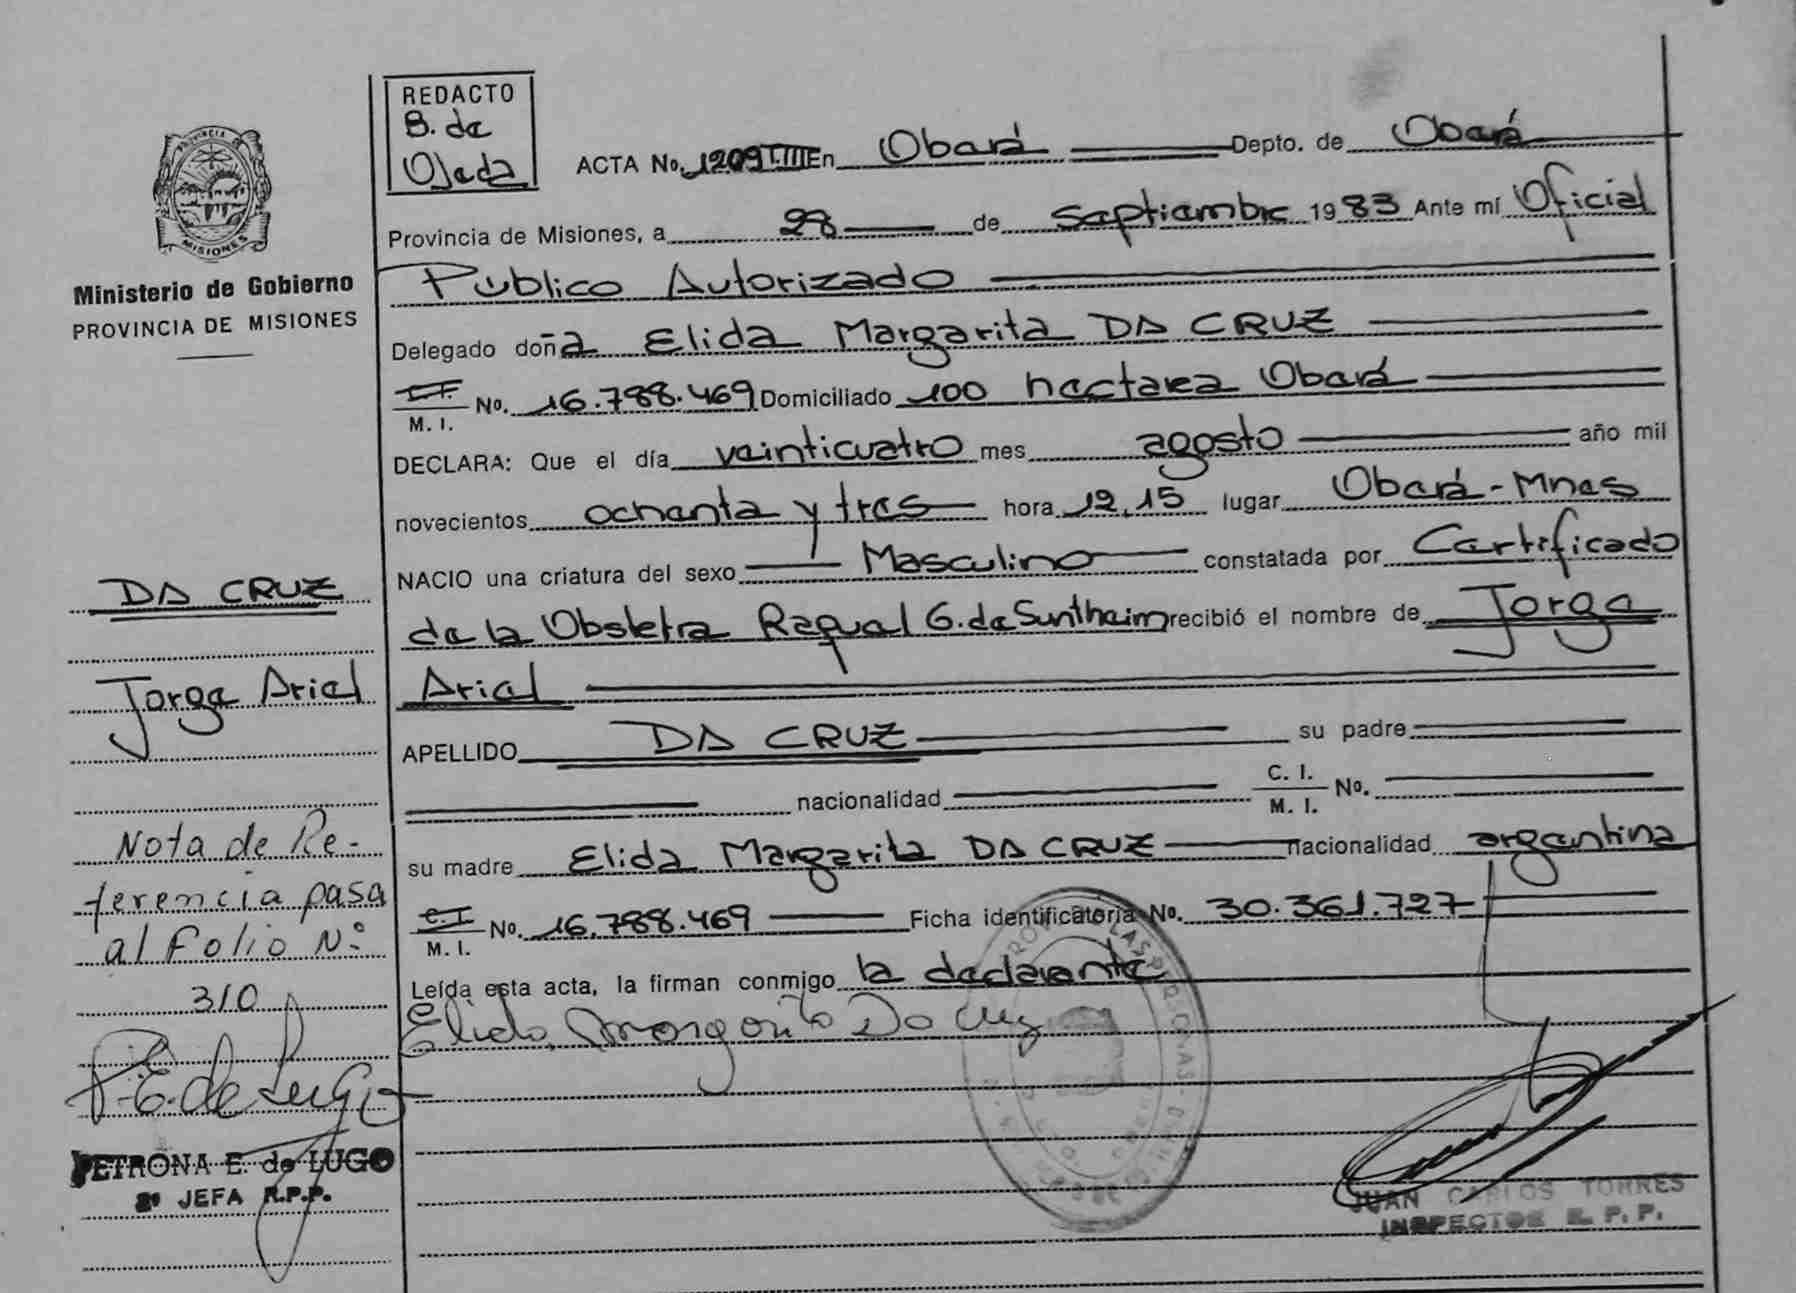 REDACTO
B. de
Ojeda
ACTA No. 1209 T.III En Oberá Depto. de Oberá
Provincia de Misiones, a 28 de septiembre 1983 Ante mí Oficial
Público Autorizado
Delegado doña Elida Margarita DA CRUZ
C.I. M. I. No. 16.788.469 Domiciliado 100 hectarea Oberá
DECLARA: Que el día veinticuatro mes agosto año mil
novecientos ochenta y tres hora 12,15 lugar Oberá-Mnes
NACIO una criatura del sexo Masculino constatada por Certificado
de la Obstetra Raquel G. de Suntheim recibió el nombre de Jorge
Ariel
APELLIDO DA CRUZ su padre
nacionalidad C. I. M. I. No.
su madre Elida Margarita DA CRUZ nacionalidad argentina
C.I. M. I. No. 16.788.469 Ficha identificatoria No. 30.361.727
Leída esta acta, la firman conmigo la declarante
Elida Margarita Da Cruz
JUAN CARLOS TORRES
INSPECTOR R. P. P.
PROVINCIA
MISIONES
Ministerio de Gobierno
PROVINCIA DE MISIONES
DA CRUZ
Jorge Ariel
Nota de Re-
ferencia pasa
al Folio Nº
310
P.E. de Lugo
PETRONA E. de LUGO
2º JEFA R.P.P.